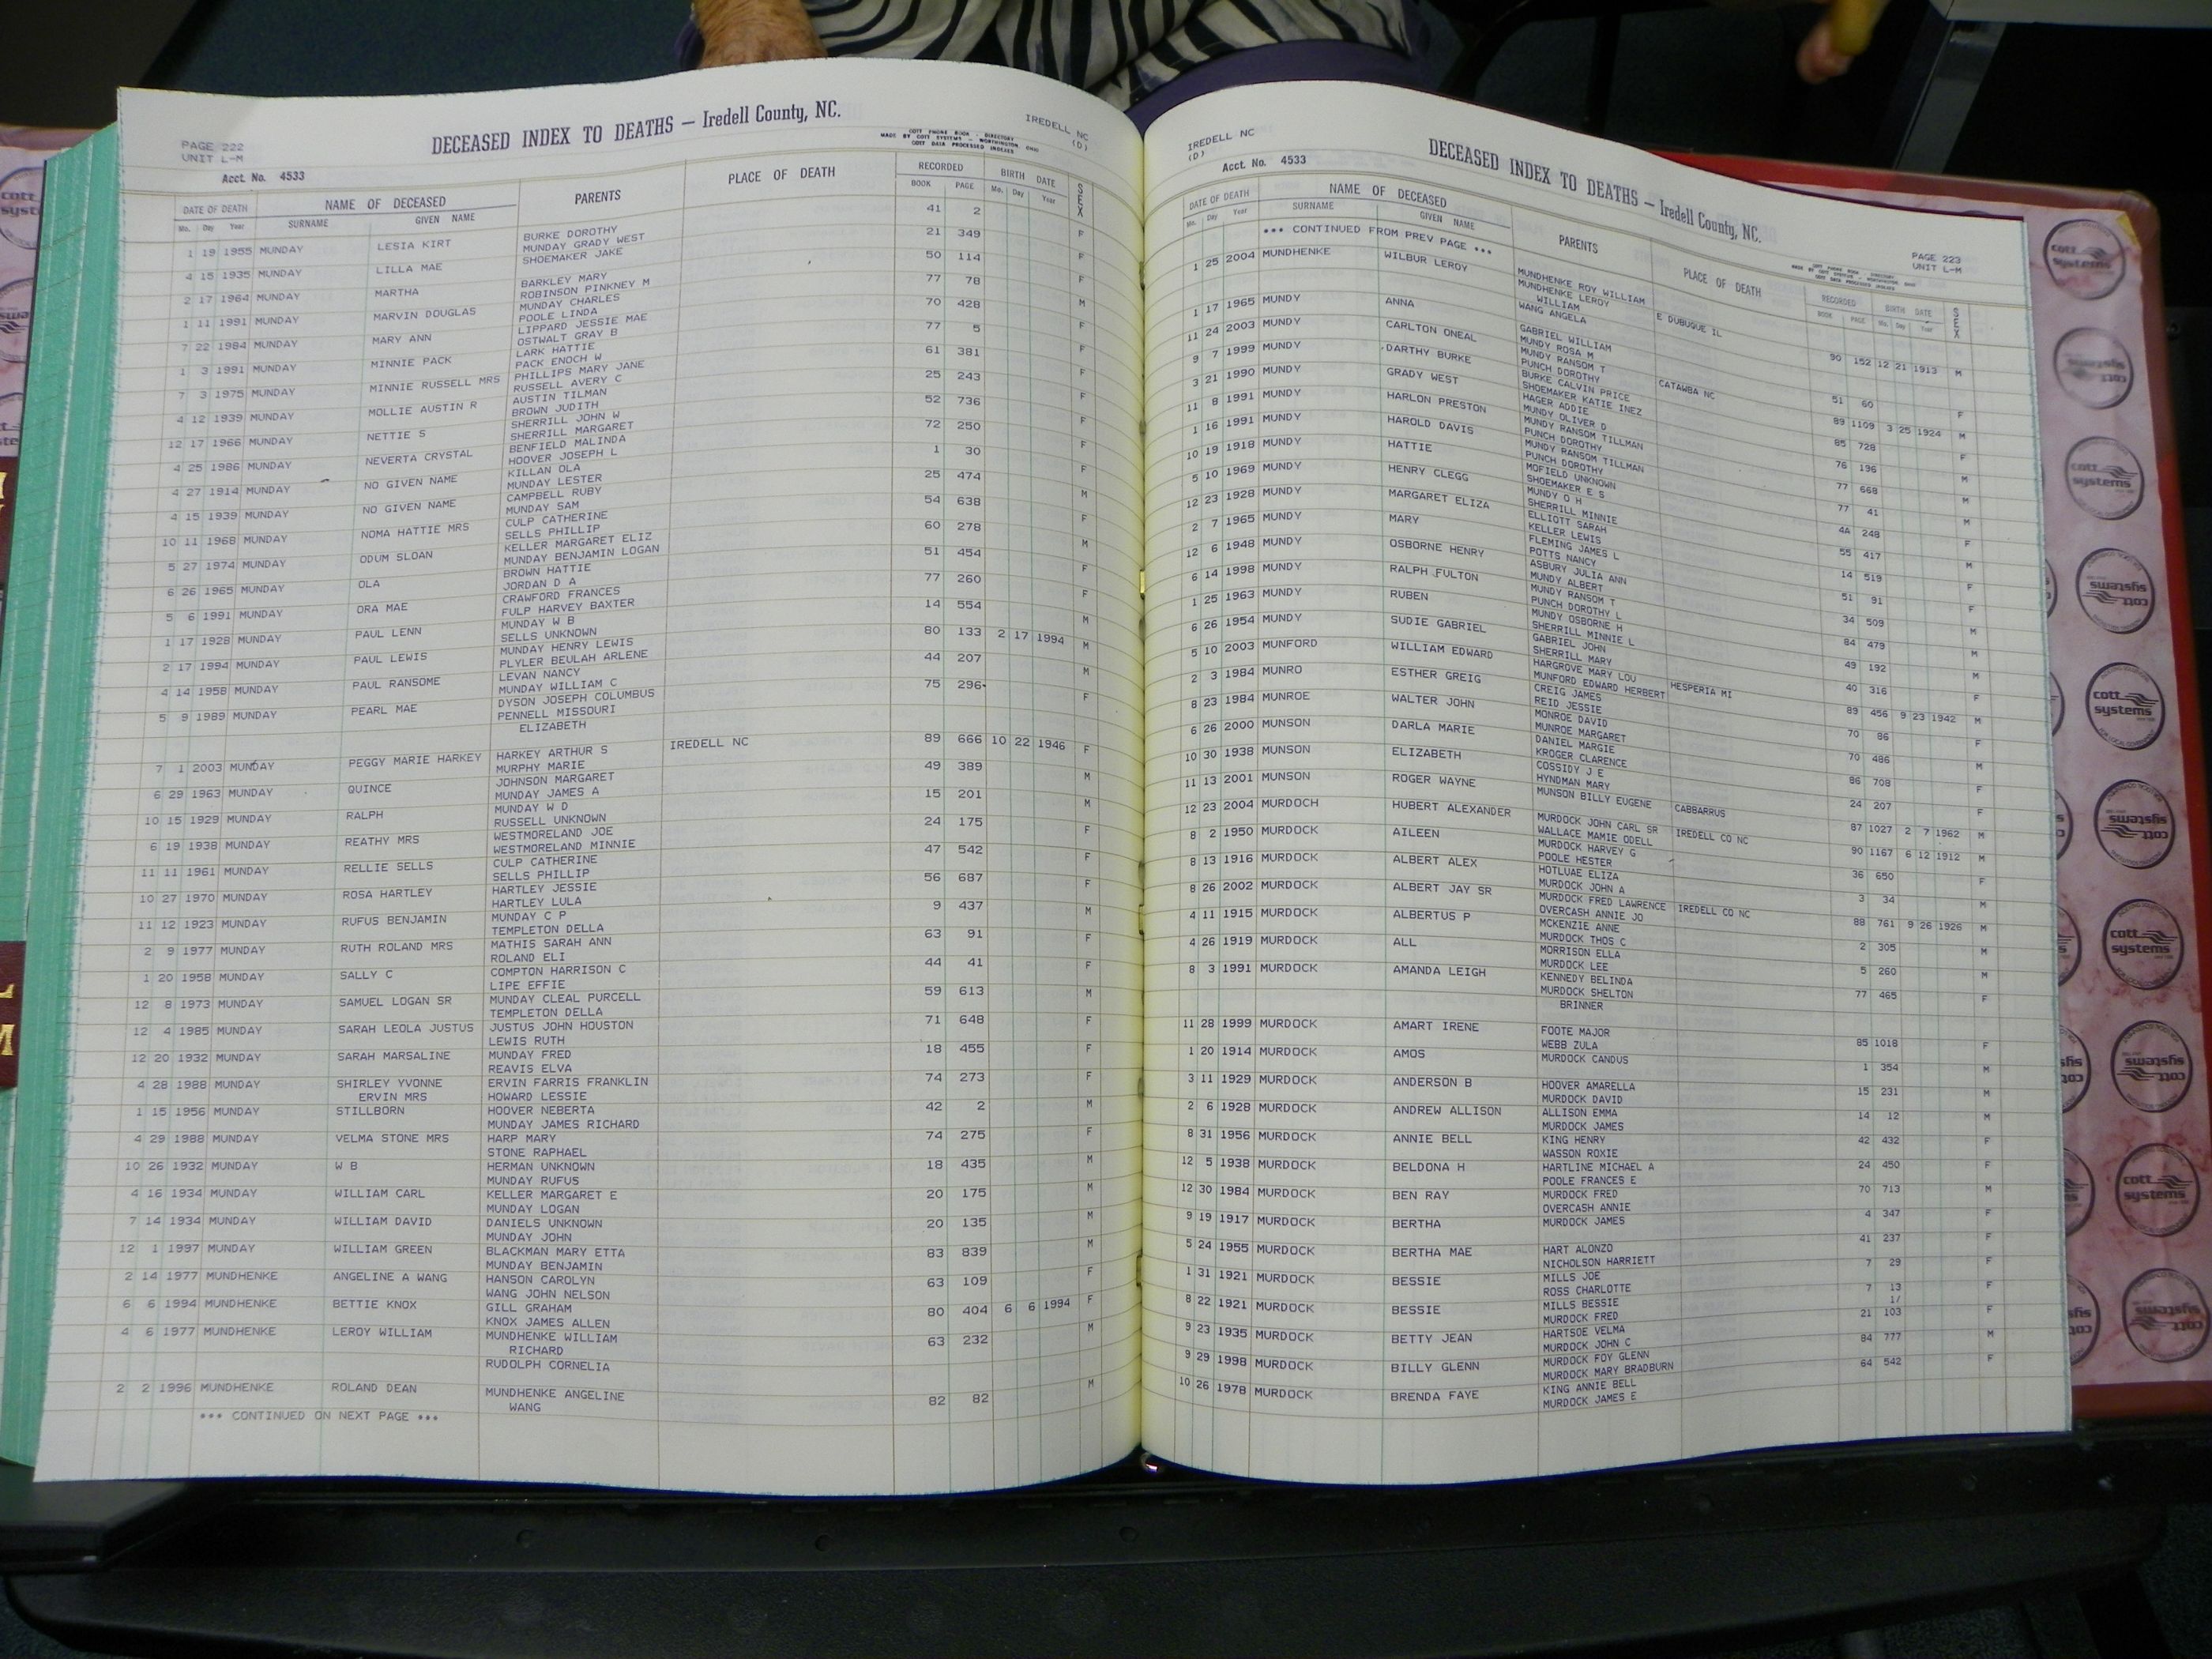 PAGE 222
UNIT L-M
DECEASED INDEX TO DEATHS — Iredell County, NC.
COTT PHONE BOOK - DIRECTORY
MADE BY COTT SYSTEMS - WORTHINGTON, OHIO
COTT DATA PROCESSED INDEXES
IREDELL NC
(D)
Acct. No. 4533
DATE OF DEATH NAME OF DECEASED PARENTS PLACE OF DEATH RECORDED BIRTH DATE SEX
Mo. Day Year SURNAME GIVEN NAME BOOK PAGE Mo. Day Year
1 19 1955 MUNDAY LESIA KIRT BURKE DOROTHY 41 2 F
MUNDAY GRADY WEST
4 15 1935 MUNDAY LILLA MAE SHOEMAKER JAKE 21 349 F
2 17 1964 MUNDAY MARTHA BARKLEY MARY 50 114 F
ROBINSON PINKNEY M
1 11 1991 MUNDAY MARVIN DOUGLAS MUNDAY CHARLES 77 78 M
POOLE LINDA
7 22 1984 MUNDAY MARY ANN LIPPARD JESSIE MAE 70 428 F
OSTWALT GRAY B
1 3 1991 MUNDAY MINNIE PACK LARK HATTIE 77 5 F
PACK ENOCH W
7 3 1975 MUNDAY MINNIE RUSSELL MRS PHILLIPS MARY JANE 61 381 F
RUSSELL AVERY C
4 12 1939 MUNDAY MOLLIE AUSTIN R AUSTIN TILMAN 25 243 F
BROWN JUDITH
12 17 1966 MUNDAY NETTIE S SHERRILL JOHN W 52 736 F
SHERRILL MARGARET
4 25 1986 MUNDAY NEVERTA CRYSTAL BENFIELD MALINDA 72 250 F
HOOVER JOSEPH L
4 27 1914 MUNDAY NO GIVEN NAME KILLAN OLA 1 30 F
MUNDAY LESTER
4 15 1939 MUNDAY NO GIVEN NAME CAMPBELL RUBY 25 474 M
MUNDAY SAM
10 11 1968 MUNDAY NOMA HATTIE MRS CULP CATHERINE 54 638 F
SELLS PHILLIP
5 27 1974 MUNDAY ODUM SLOAN KELLER MARGARET ELIZ 60 278 M
MUNDAY BENJAMIN LOGAN
6 26 1965 MUNDAY OLA BROWN HATTIE 51 454 F
JORDAN D A
5 6 1991 MUNDAY ORA MAE CRAWFORD FRANCES 77 260 F
FULP HARVEY BAXTER
1 17 1928 MUNDAY PAUL LENN MUNDAY W B 14 554 M
SELLS UNKNOWN
2 17 1994 MUNDAY PAUL LEWIS MUNDAY HENRY LEWIS 80 133 2 17 1994 M
PLYLER BEULAH ARLENE
4 14 1958 MUNDAY PAUL RANSOME LEVAN NANCY 44 207 M
MUNDAY WILLIAM C
5 9 1989 MUNDAY PEARL MAE DYSON JOSEPH COLUMBUS 75 296 F
PENNELL MISSOURI
ELIZABETH
7 1 2003 MUNDAY PEGGY MARIE HARKEY HARKEY ARTHUR S IREDELL NC 89 666 10 22 1946 F
MURPHY MARIE
6 29 1963 MUNDAY QUINCE JOHNSON MARGARET 49 389 M
MUNDAY JAMES A
10 15 1929 MUNDAY RALPH MUNDAY W D 15 201 M
RUSSELL UNKNOWN
6 19 1938 MUNDAY REATHY MRS WESTMORELAND JOE 24 175 F
WESTMORELAND MINNIE
11 11 1961 MUNDAY RELLIE SELLS CULP CATHERINE 47 542 F
SELLS PHILLIP
10 27 1970 MUNDAY ROSA HARTLEY HARTLEY JESSIE 56 687 F
HARTLEY LULA
11 12 1923 MUNDAY RUFUS BENJAMIN MUNDAY C P 9 437 M
TEMPLETON DELLA
2 9 1977 MUNDAY RUTH ROLAND MRS MATHIS SARAH ANN 63 91 F
ROLAND ELI
1 20 1958 MUNDAY SALLY C COMPTON HARRISON C 44 41 F
LIPE EFFIE
12 8 1973 MUNDAY SAMUEL LOGAN SR MUNDAY CLEAL PURCELL 59 613 M
TEMPLETON DELLA
12 4 1985 MUNDAY SARAH LEOLA JUSTUS JUSTUS JOHN HOUSTON 71 648 F
LEWIS RUTH
12 20 1932 MUNDAY SARAH MARSALINE MUNDAY FRED 18 455 F
REAVIS ELVA
4 28 1988 MUNDAY SHIRLEY YVONNE ERVIN FARRIS FRANKLIN 74 273 F
ERVIN MRS HOWARD LESSIE
1 15 1956 MUNDAY STILLBORN HOOVER NEBERTA 42 2 M
MUNDAY JAMES RICHARD
4 29 1988 MUNDAY VELMA STONE MRS HARP MARY 74 275 F
STONE RAPHAEL
10 26 1932 MUNDAY W B HERMAN UNKNOWN 18 435 M
MUNDAY RUFUS
4 16 1934 MUNDAY WILLIAM CARL KELLER MARGARET E 20 175 M
MUNDAY LOGAN
7 14 1934 MUNDAY WILLIAM DAVID DANIELS UNKNOWN 20 135 M
MUNDAY JOHN
12 1 1997 MUNDAY WILLIAM GREEN BLACKMAN MARY ETTA 83 839 M
MUNDAY BENJAMIN
2 14 1977 MUNDHENKE ANGELINE A WANG HANSON CAROLYN 63 109 F
WANG JOHN NELSON
6 6 1994 MUNDHENKE BETTIE KNOX GILL GRAHAM 80 404 6 6 1994 F
KNOX JAMES ALLEN
4 6 1977 MUNDHENKE LEROY WILLIAM MUNDHENKE WILLIAM 63 232 M
RICHARD
RUDOLPH CORNELIA
2 2 1996 MUNDHENKE ROLAND DEAN MUNDHENKE ANGELINE 82 82 M
WANG
*** CONTINUED ON NEXT PAGE ***
IREDELL NC
(D)
DECEASED INDEX TO DEATHS — Iredell County, NC.
PAGE 223
UNIT L-M
Acct. No. 4533
DATE OF DEATH NAME OF DECEASED PARENTS PLACE OF DEATH RECORDED BIRTH DATE SEX
Mo. Day Year SURNAME GIVEN NAME BOOK PAGE Mo. Day Year
*** CONTINUED FROM PREV PAGE ***
1 25 2004 MUNDHENKE WILBUR LEROY MUNDHENKE ROY WILLIAM E DUBUQUE IL 90 152 12 21 1913 M
MUNDHENKE LEROY
WILLIAM
WANG ANGELA
1 17 1965 MUNDY ANNA GABRIEL WILLIAM 51 60 F
MUNDY ROSA M
11 24 2003 MUNDY CARLTON ONEAL MUNDY RANSOM T CATAWBA NC 89 1109 3 25 1924 M
PUNCH DOROTHY
9 7 1999 MUNDY DARTHY BURKE BURKE CALVIN PRICE 85 728 F
SHOEMAKER KATIE INEZ
3 21 1990 MUNDY GRADY WEST HAGER ADDIE 76 196 M
MUNDY OLIVER D
11 8 1991 MUNDY HARLON PRESTON MUNDY RANSOM TILLMAN 77 668 M
PUNCH DOROTHY
1 16 1991 MUNDY HAROLD DAVIS MUNDY RANSOM TILLMAN 77 41 M
PUNCH DOROTHY
10 19 1918 MUNDY HATTIE MOFIELD UNKNOWN 4A 248 F
SHOEMAKER E S
5 10 1969 MUNDY HENRY CLEGG MUNDY O H 55 417 M
SHERRILL MINNIE
12 23 1928 MUNDY MARGARET ELIZA ELLIOTT SARAH 14 519 F
KELLER LEWIS
2 7 1965 MUNDY MARY FLEMING JAMES L 51 91 F
POTTS NANCY
12 6 1948 MUNDY OSBORNE HENRY ASBURY JULIA ANN 34 509 M
MUNDY ALBERT
6 14 1998 MUNDY RALPH FULTON MUNDY RANSOM T 84 479 M
PUNCH DOROTHY L
1 25 1963 MUNDY RUBEN MUNDY OSBORNE H 49 192 M
SHERRILL MINNIE L
6 26 1954 MUNDY SUDIE GABRIEL GABRIEL JOHN 40 316 F
SHERRILL MARY
5 10 2003 MUNFORD WILLIAM EDWARD HARGROVE MARY LOU HESPERIA MI 89 456 9 23 1942 M
MUNFORD EDWARD HERBERT
2 3 1984 MUNRO ESTHER GREIG CREIG JAMES 70 86 F
REID JESSIE
8 23 1984 MUNROE WALTER JOHN MONROE DAVID 70 486 M
MUNROE MARGARET
6 26 2000 MUNSON DARLA MARIE DANIEL MARGIE 86 708 F
KROGER CLARENCE
10 30 1938 MUNSON ELIZABETH COSSIDY J E 24 207 F
HYNDMAN MARY
11 13 2001 MUNSON ROGER WAYNE MUNSON BILLY EUGENE CABBARRUS 87 1027 2 7 1962 M
12 23 2004 MURDOCH HUBERT ALEXANDER MURDOCK JOHN CARL SR IREDELL CO NC 90 1167 6 12 1912 M
WALLACE MAMIE ODELL
8 2 1950 MURDOCK AILEEN MURDOCK HARVEY G 36 650 F
POOLE HESTER
8 13 1916 MURDOCK ALBERT ALEX HOTLUAE ELIZA 3 34 M
MURDOCK JOHN A
8 26 2002 MURDOCK ALBERT JAY SR MURDOCK FRED LAWRENCE IREDELL CO NC 88 761 9 26 1926 M
OVERCASH ANNIE JO
4 11 1915 MURDOCK ALBERTUS P MCKENZIE ANNE 2 305 M
MURDOCK THOS C
4 26 1919 MURDOCK ALL MORRISON ELLA 5 260 M
MURDOCK LEE
8 3 1991 MURDOCK AMANDA LEIGH KENNEDY BELINDA 77 465 F
MURDOCK SHELTON
BRINNER
11 28 1999 MURDOCK AMART IRENE FOOTE MAJOR 85 1018 F
WEBB ZULA
1 20 1914 MURDOCK AMOS MURDOCK CANDUS 1 354 M
3 11 1929 MURDOCK ANDERSON B HOOVER AMARELLA 15 231 M
MURDOCK DAVID
2 6 1928 MURDOCK ANDREW ALLISON ALLISON EMMA 14 12 M
MURDOCK JAMES
8 31 1956 MURDOCK ANNIE BELL KING HENRY 42 432 F
WASSON ROXIE
12 5 1938 MURDOCK BELDONA H HARTLINE MICHAEL A 24 450 F
POOLE FRANCES E
12 30 1984 MURDOCK BEN RAY MURDOCK FRED 70 713 M
OVERCASH ANNIE
9 19 1917 MURDOCK BERTHA MURDOCK JAMES 4 347 F
5 24 1955 MURDOCK BERTHA MAE HART ALONZO 41 237 F
NICHOLSON HARRIETT
1 31 1921 MURDOCK BESSIE MILLS JOE 7 29 F
ROSS CHARLOTTE
8 22 1921 MURDOCK BESSIE MILLS BESSIE 7 13 F
MURDOCK FRED 1/
9 23 1935 MURDOCK BETTY JEAN HARTSOE VELMA 21 103 F
MURDOCK JOHN C
9 29 1998 MURDOCK BILLY GLENN MURDOCK FOY GLENN 84 777 M
MURDOCK MARY BRADBURN
10 26 1978 MURDOCK BRENDA FAYE KING ANNIE BELL 64 542 F
MURDOCK JAMES E
cott systems
cott systems
cott systems
cott systems
cott systems